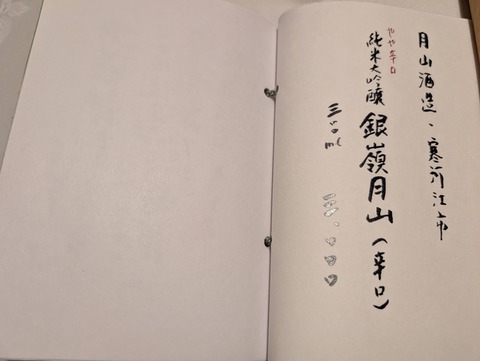 月山酒造・寒河江市
やや辛口
純米大吟醸 銀嶺月山(辛口)
三〇〇ml 三、〇〇〇